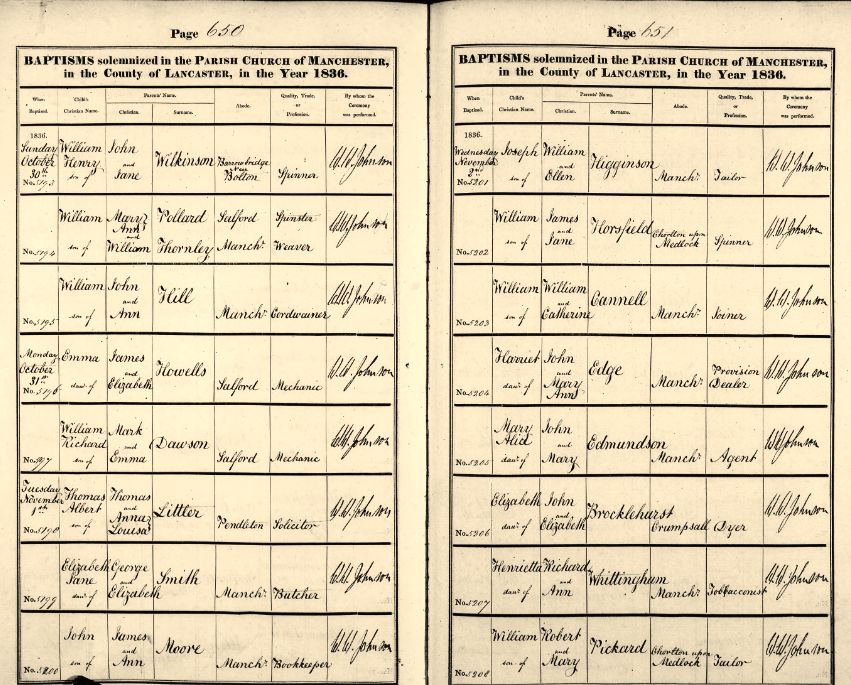 Page 650
BAPTISMS solemnized in the PARISH CHURCH of MANCHESTER,
in the County of LANCASTER, in the Year 1836.
When Baptized.
Child's Christian Name.
Parents' Name.
Christian.
Surname.
Abode.
Quality, Trade, or Profession.
By whom the Ceremony was performed.
1836.
Sunday October 30th No. 5193
William Henry son of
John and Jane
Wilkinson
Bolton
Spinner
W.W. Johnson
No. 5194
William son of
Mary Ann and William
Pollard Thornley
Salford Manchr
Spinster Weaver
W.W. Johnson
No. 5195
William son of
John and Ann
Hill
Manchr
Cordwainer
W.W. Johnson
Monday October 31st No. 5196
Emma daur of
James and Elizabeth
Howells
Salford
Mechanic
W.W. Johnson
William Richard son of
Mark and Emma
Dawson
Salford
Mechanic
W.W. Johnson
Tuesday November 1st No. 5198
Thomas Albert son of
Thomas and Anna Louisa
Littler
Pendleton
Solicitor
W.W. Johnson
No. 5199
Elizabeth Jane daur of
George and Elizabeth
Smith
Manchr
Butcher
W.W. Johnson
No. 5200
John son of
James and Ann
Moore
Manchr
Bookkeeper
W.W. Johnson
Page 651
BAPTISMS solemnized in the PARISH CHURCH of MANCHESTER,
in the County of LANCASTER, in the Year 1836.
When Baptized.
Child's Christian Name.
Parents' Name.
Christian.
Surname.
Abode.
Quality, Trade, or Profession.
By whom the Ceremony was performed.
1836.
Wednesday November 2nd No. 5201
Joseph son of
William and Ellen
Higginson
Manchr
Tailor
W.W. Johnson
No. 5202
William son of
James and Jane
Horsfield
Chorlton upon Medlock
Spinner
W.W. Johnson
No. 5203
William son of
William and Catherine
Cannell
Manchr
Joiner
W.W. Johnson
No. 5204
Harriet daur of
John and Mary Ann
Edge
Manchr
Provision Dealer
W.W. Johnson
No. 5205
Mary Alid daur of
John and Mary
Edmundson
Manchr
Agent
W.W. Johnson
No. 5206
Elizabeth daur of
John and Elizabeth
Brocklehurst
Crumpsall
Dyer
W.W. Johnson
No. 5207
Henrietta daur of
Richard and Ann
Whittingham
Manchr
Tobbacconist
W.W. Johnson
No. 5208
William son of
Robert and Mary
Pickard
Chorlton upon Medlock
Tailor
W.W. Johnson